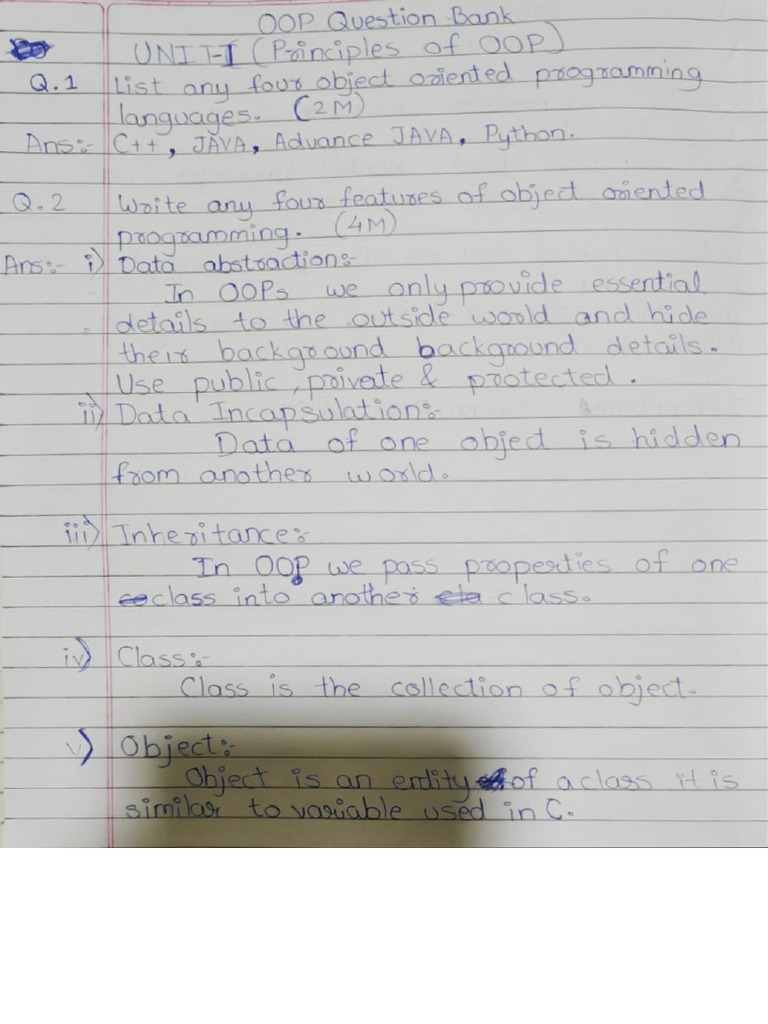 OOP Question Bank
UNIT-I (Principles of OOP)
Q.1 List any four object oriented programming
languages. (2M)
Ans:- C++, JAVA, Advance JAVA, Python.
Q.2 Write any four features of object oriented
programming. (4M)
Ans:- i) Data abstraction:-
In OOPs we only provide essential
details to the outside world and hide
their background background details.
Use public, private & protected.
ii) Data Incapsulation:-
Data of one object is hidden
from another world.
iii) Inheritance:-
In OOP we pass properties of one
class into another class.
iv) Class:-
Class is the collection of object.
v) Object:-
Object is an entity of a class it is
similar to variable used in C.